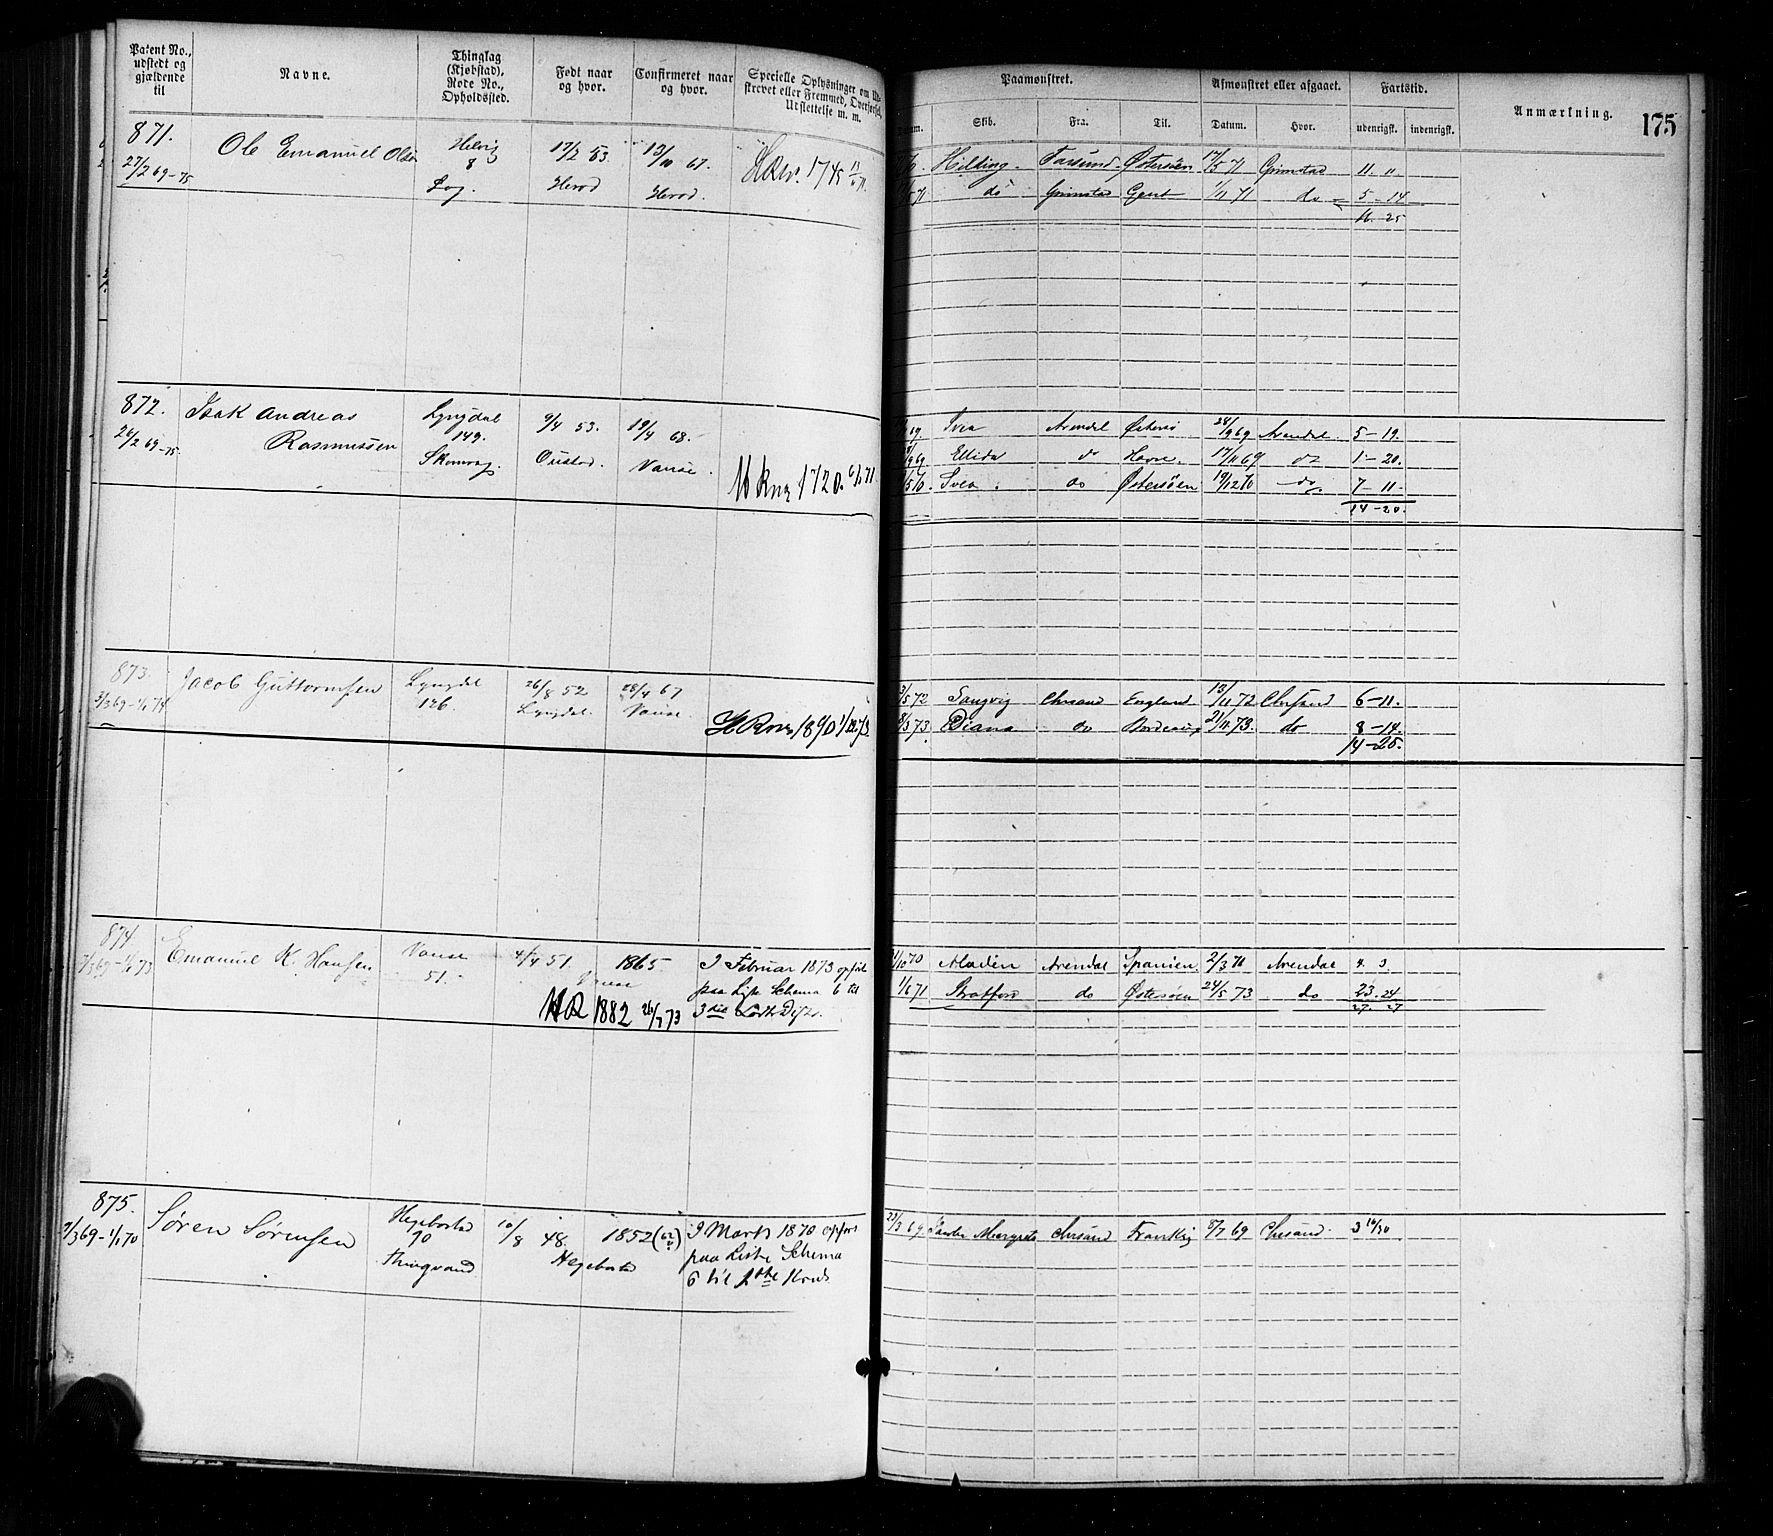 Patent No., udstedt og gjældende til
Navne.
Thinglag (Kjøbstad), Rode No., Opholdssted.
Født naar og hvor.
Confirmeret naar og hvor.
Specielle Oplysninger om Ud-
skrevet eller Fremmed, Overførsel,
Udslettelse m. m.
Paamønstret.
Afmønstret eller afgaaet.
Fartstid.
Anmærkning.
175
Skib.
Fra.
Til.
Datum.
Hvor.
udenrigsk.
indenrigsk.
871.
27/2 69-75
Ole Emanuel Olsen
8
17/2 53
Herod
13/10 67.
Herod.
1745
Farsund Østersöen 17/5 71 Grimstad 11. "
do Grimstad Gent 1/11 71 do 5-14
16-25
872.
26/2 69-75
Isak Andreas
Rasmussen
Lyngdal
149.
9/4 53.
19/4 68.
Vanse.
1720. 6/1 71
Svea Arendal 24/9 69 Arendal. 5-19.
Ellida do Havre. 17/11 69 do 1-20.
Svea. do Østersöen 19/12 70 do. 7-11-
14-20.
873.
3/3 69-1/1 74
Jacob Guttormsen
Lyngdal
126.
26/8 52
Lyngdal.
28/4 67
Vanse.
1890 1/12 73.
3/5 72 Sangvig Chrsand England. 13/11 72 Chrsand 6-11.
8/3 73. Diana do Bordeaux 21/11 73. do 8-14.
14-25.
874
3/3 69-1/1 73
Emanuel K. Hansen
Vanse
51.
4/4 51.
1865
Vanse
I Februar 1873 opført
paa Liste Schema 6 til
HR 1882 26/7 73
1/10 70 Aladin Arendal Spanien. 2/3 71 Arendal 4. 3.
1/6 71 Stratford do Østersöen 24/5 73 do 23. 24
27. 27
875.
9/3 69-1/1 70
Søren Sørensen
Hegebostad
70
Thingvand
10/8 48.
1852 (62?)
Hegebostad
I Marts 1870 opført
paa Liste Schema
6 til
23/3 69 Margrete Chrsand Frankrig 8/7 69 Chrsand. 3 16/30